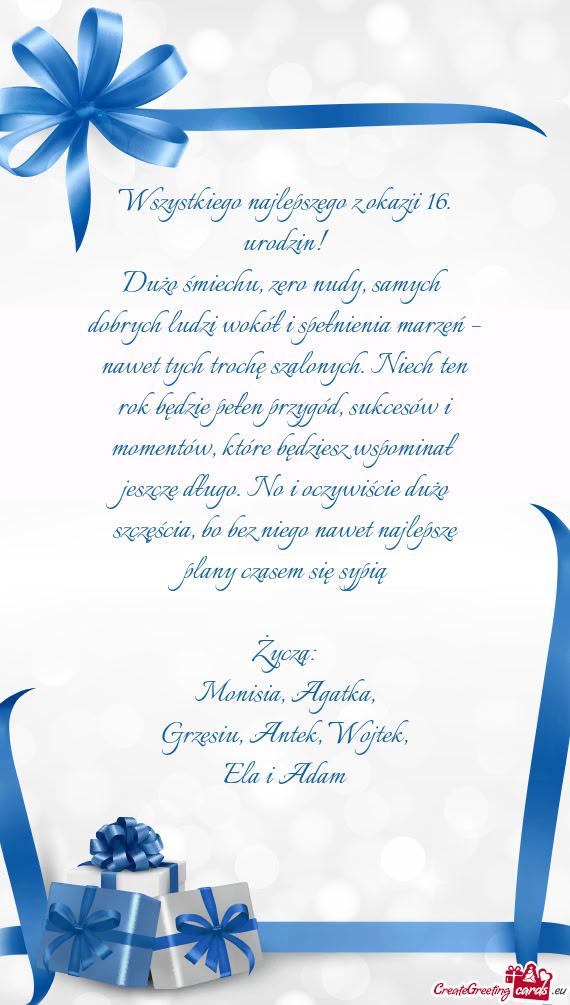 Wszystkiego najlepszego z okazji 16.
urodzin!
Dużo śmiechu, zero nudy, samych
dobrych ludzi wokół i spełnienia marzeń –
nawet tych trochę szalonych. Niech ten
rok będzie pełen przygód, sukcesów i
momentów, które będziesz wspominał
jeszcze długo. No i oczywiście dużo
szczęścia, bo bez niego nawet najlepsze
plany czasem się sypią
Życzą:
Monisia, Agatka,
Grzesiu, Antek, Wojtek,
Ela i Adam
CreateGreeting cards .eu